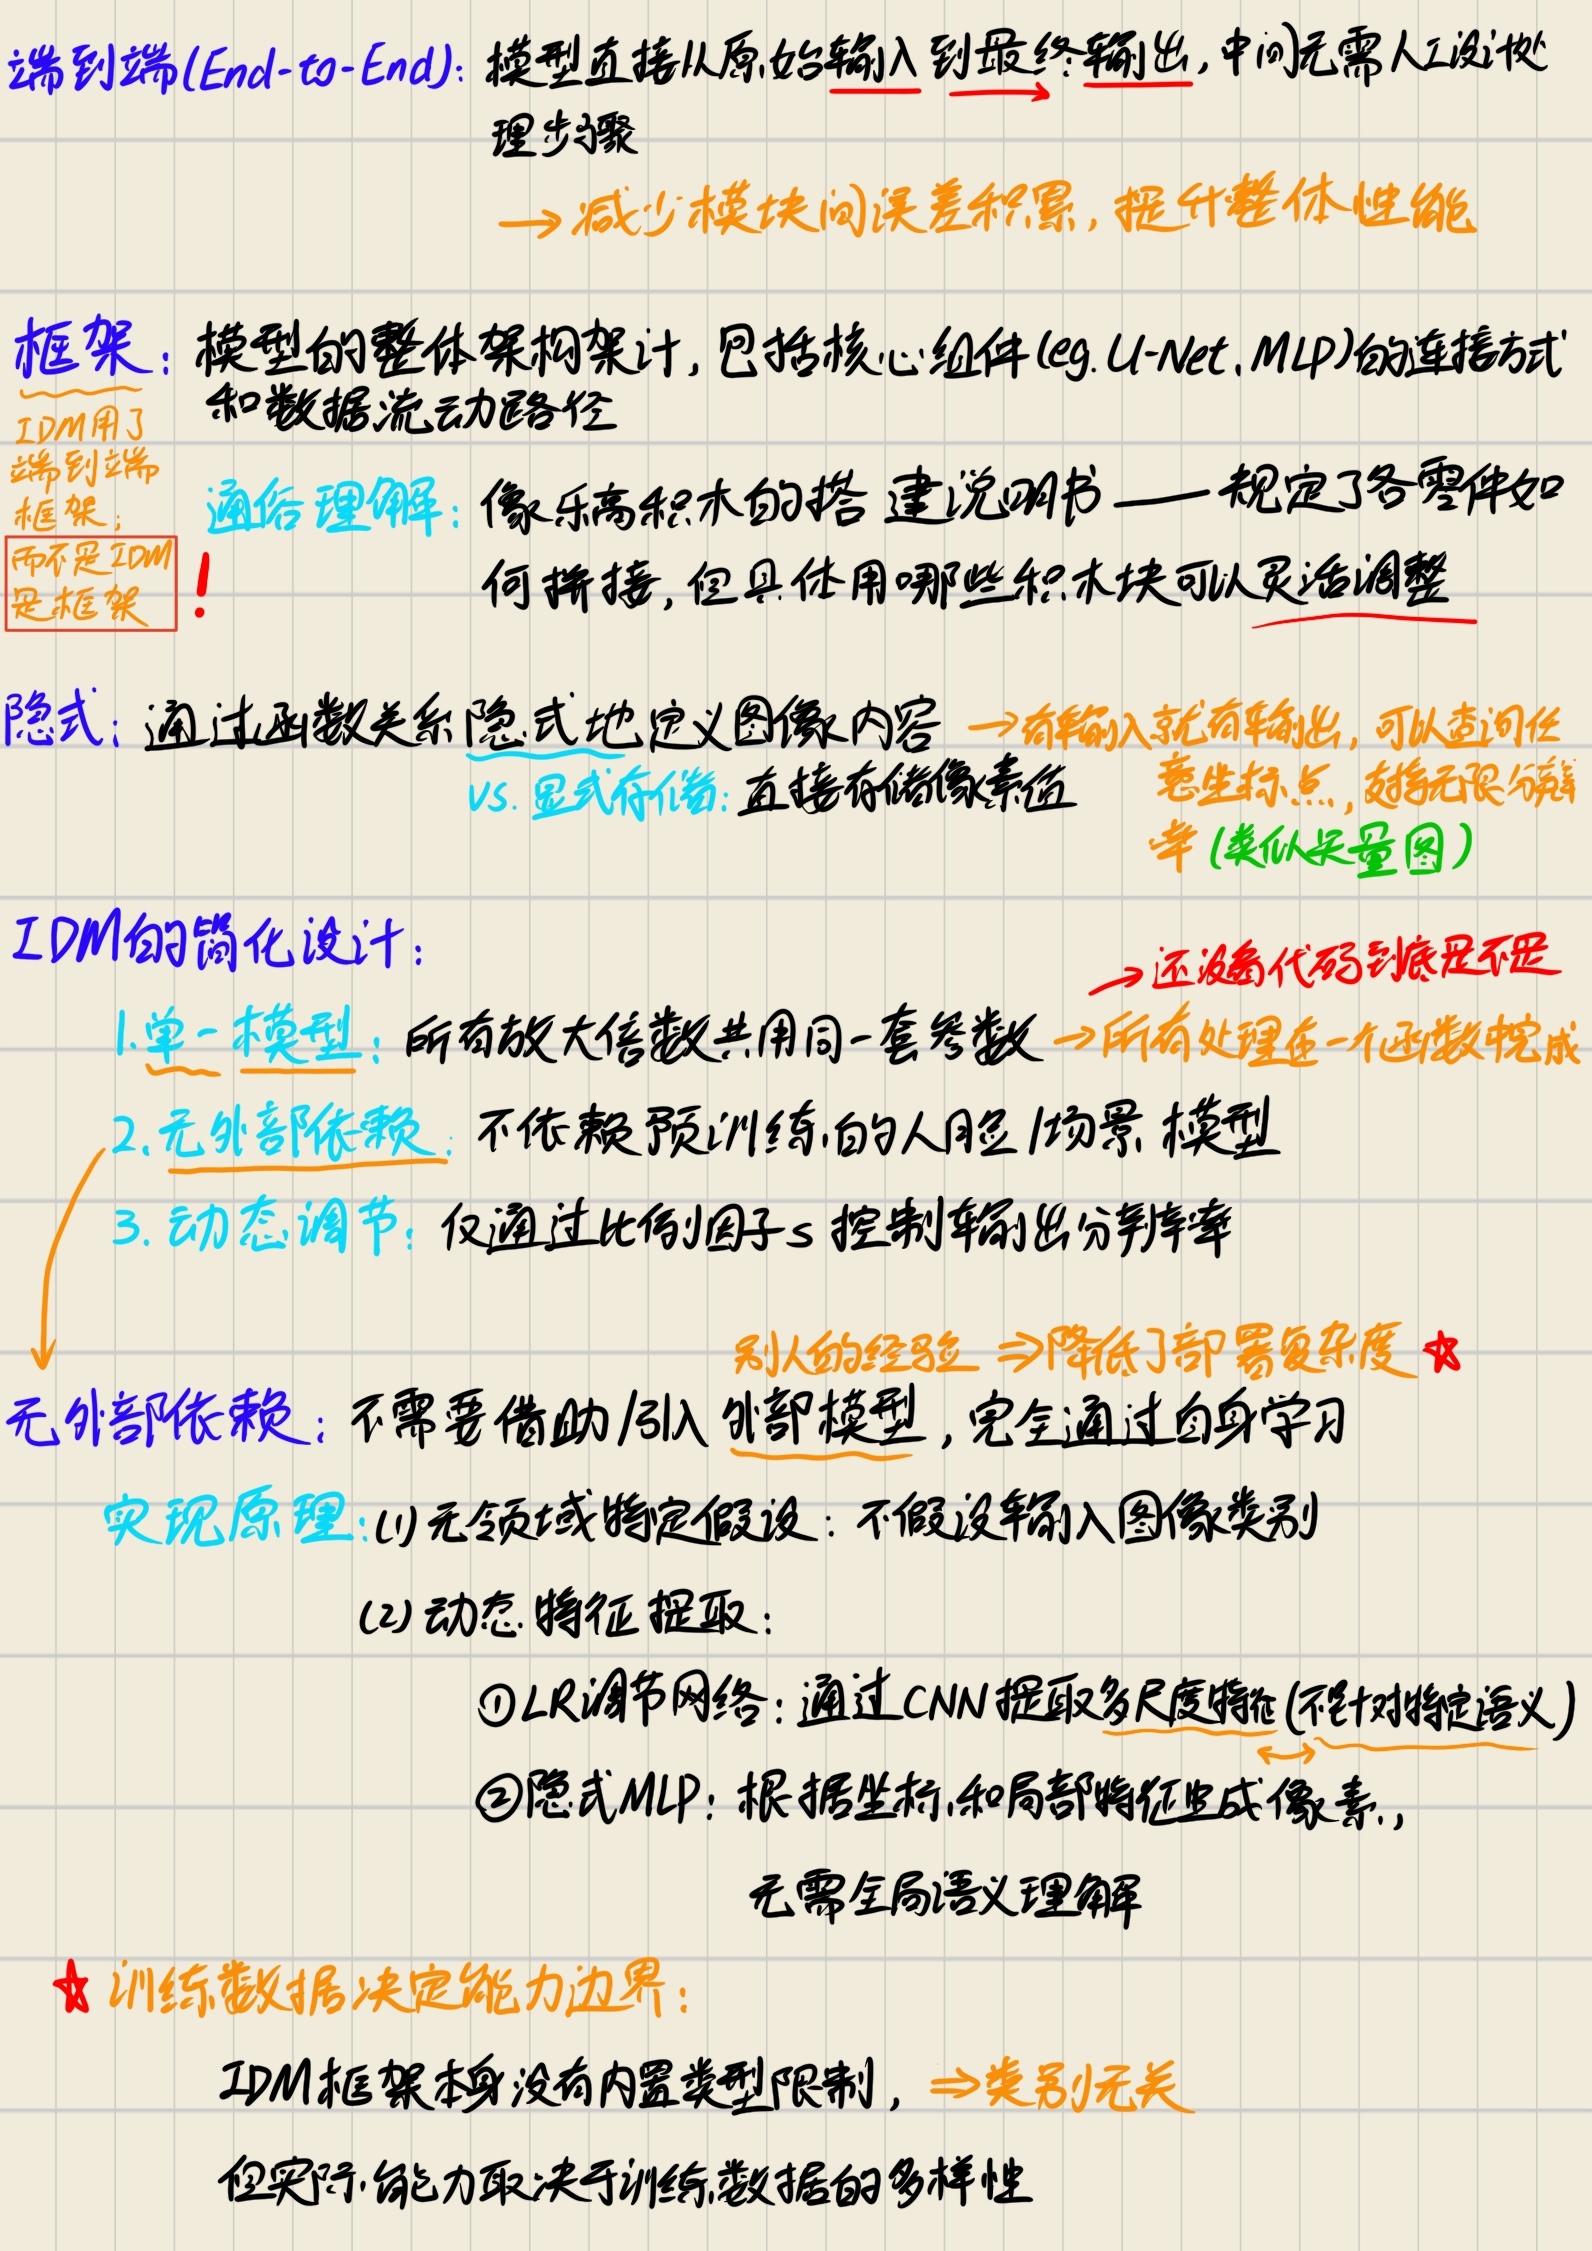 端到端(End-to-End): 模型直接从原始输入到最终输出,中间无需人工设计处
理步骤
→减少模块间误差积累,提升整体性能
框架: 模型的整体架构架计,包括核心组件(eg. U-Net, MLP)的连接方式
和数据流动路径
IDM用了
端到端
框架;
而不是IDM
是框架
!
通俗理解: 像乐高积木的搭建说明书——规定了各零件如
何拼接,但具体用哪些积木块可以灵活调整
隐式: 通过函数关系隐式地定义图像内容 →有输入就有输出,可以查询任
vs. 显式存储: 直接存储像素值
意坐标点,支持无限分辨
率(类似矢量图)
IDM的简化设计:
→还没看代码到底是不是
1.单一模型: 所有放大倍数共用同一套参数→所有处理在一个函数中完成
2.无外部依赖: 不依赖预训练的人脸/场景模型
3.动态调节: 仅通过比例因子s控制输出分辨率
别人的经验 ⇒降低了部署复杂度☆
无外部依赖: 不需要借助/引入外部模型,完全通过自身学习
实现原理: (1)无领域特定假设: 不假设输入图像类别
(2)动态特征提取:
①LR调节网络: 通过CNN提取多尺度特征(不针对特定语义)
②隐式MLP: 根据坐标和局部特征生成像素,
无需全局语义理解
☆训练数据决定能力边界:
IDM框架本身没有内置类型限制, ⇒类别无关
但实际能力取决于训练数据的多样性